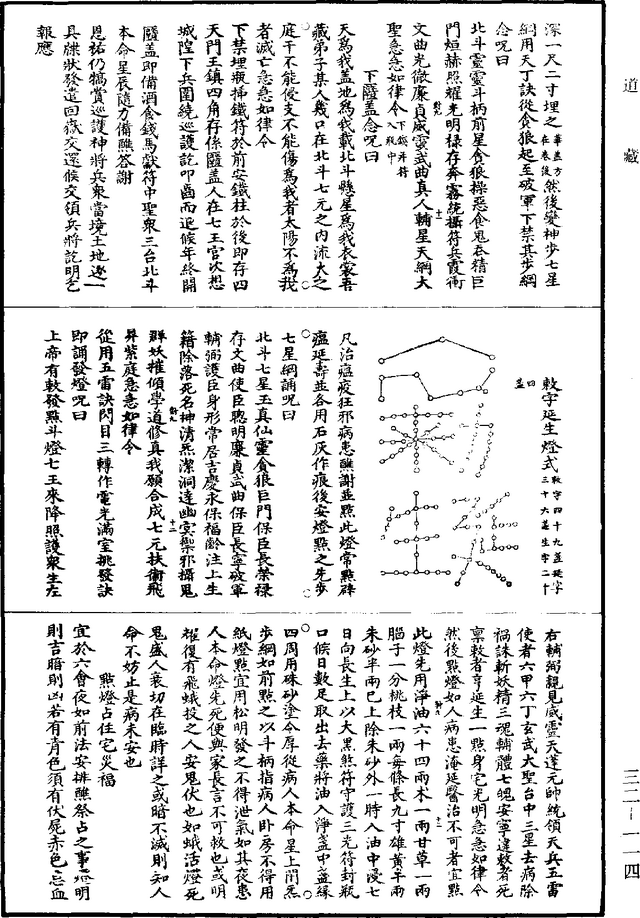 道藏
三二—一一四
深一尺二寸埋之華蓋方在卷後然後變神步七星
綱用天丁訣從貪狼起至破軍下禁其步綱
念呪曰
北斗靈靈斗柄前星貪狼操惡食鬼吞精巨
門烜赫照耀光明祿存奔霧統攝符兵霞衝
文曲光微廉貞威震武曲真人輔星天綱大
聖急急如律令下鐵并符入瓶中
下魘蓋念呪曰
天為我蓋地為我載北斗懸星為我衣裳吾
藏弟子某人幾口在北斗七元之內沐大之
庭干不能侵支不能傷為我者太陽不為我
者滅亡急急如律令
下禁埋瓶掃鐵符於前安鐵柱於後即存四
天門王鎮四角存係魘蓋人在七王宮次想
城隍下兵圍繞巡護訖叩齒而退候年終開
魘蓋即備酒食錢馬獻符中聖衆三台北斗
本命星辰隨力備醮答謝
恩祐仍犒賞巡護神將兵衆當境土地逐一
具牒狀發遣回嶽交還候交領兵將訖明乞
報應
敕字延生燈式敕字四十九盞延字三十六盞生字二十四盞
凡治瘟疫狂邪病患醮謝並點此燈常點辟
瘟延壽並各用石灰作痕後安燈點之先步
七星綱誦呪曰
北斗七星玉真仙靈貪狼巨門保臣長榮祿
存文曲使臣聰明廉貞武曲保臣長寧破軍
輔弼護臣身形常居吉慶永保福齡注上生
籍除落死名神清炁潔洞達幽冥禦邪攝鬼
群妖摧傾學道修真我願合成七元扶衛飛
昇紫庭急急如律令
從用五雷訣閃目三轉作電光滿室挑發訣
即誦發燈呪曰
上帝有敕發點斗燈七王來降照護衆生左
右輔弼親見威靈天蓬元帥統領天兵五雷
使者六甲六丁玄武大聖台中三星去病除
禍誅斬妖精三魂輔體七魄安寧違敕者死
禀敕者亨延生一點身宅光明急急如律令
然後點燈如人病患淹延醫治不可者宜點
此燈先用淨油六十四兩木一兩甘草一兩
腦子一分桃枝一兩每條長九寸雄黃半兩
朱砂半兩已上除朱砂外一時入油中浸七
日向長生上以大黑煞符守護三光符封瓶
口候日數足取出去藥將油入淨盞中盞緣
四周用硃砂塗今厚從病人本命星上閉炁
步綱如前點之以斗柄指病人卧房不得用
紙燈點宜用松明發之不得泄氣如其夜患
人本命燈先死便與家長言不可救也或明
耀復有飛蛾投之人安鬼伏也如蛾活燈死
鬼盛人衰切在臨時詳之或暗不滅則知人
命不妨止是病未安也
點燈占住宅災福
宜於六會夜如前法安排醮祭占之事燈明
則吉暗則凶若有青色須有伏屍赤色忘血